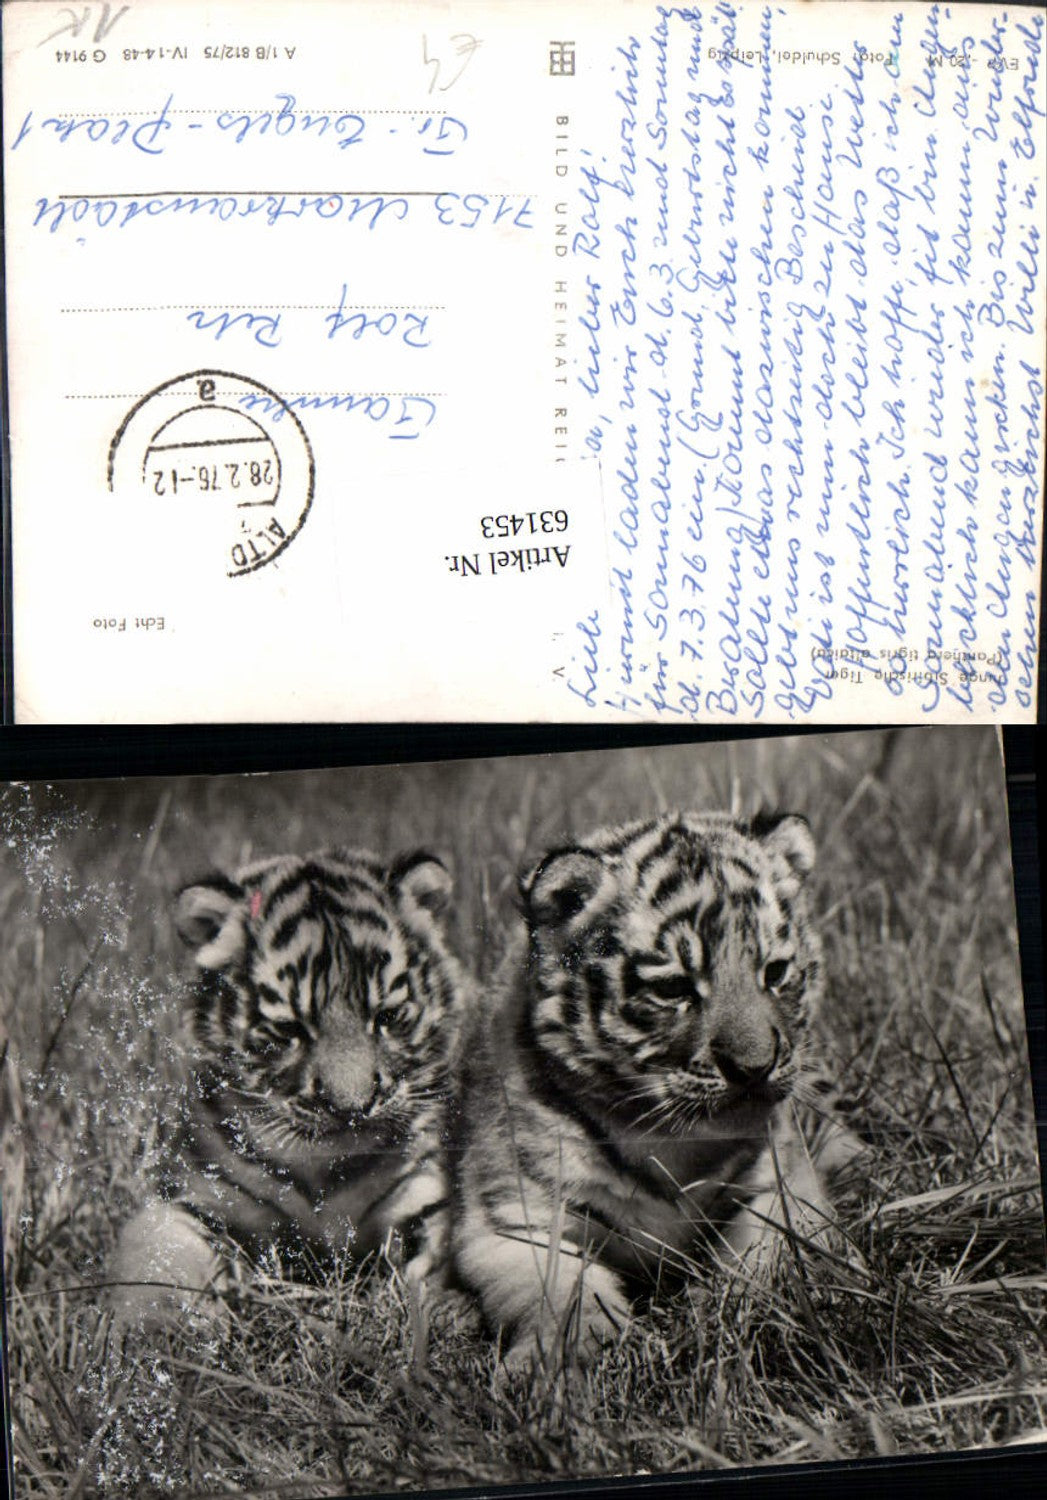 Junge Sibirische Tiger
(Panthera tigris altaica)
Liebe a, lieber Rolf!
Hiermit laden wir Euch herzlich
für Sonnabend d. 6.3 und Sonntag
d. 7.3.76 ein. (Grund, Geburtstag und
Kommt bitte nicht so spät
Sollte etwas dazwischen kommen,
gebt uns rechtzeitig Bescheid.
Vati ist nun doch zu Hause.
Hoffentlich bleibt das Wetter
so herrlich. Ich hoffe, daß ich am
Sonnabend wieder fit bin.
kann ich kaum aus
den Augen gucken. Bis zum Wieder-
sehen herzlichst Willi u. Elfriede
EVP -,20 M Foto: Schuldei, Leipzig
BILD UND HEIMAT REI
i. V.
Echt Foto
ALTO
28.2.76.-12
a
Familie
Rolf
7153 Markranstädt
Fr.-Engels-Platz 1
A 1/B 812/75 IV-14-48 G 9144
Artikel Nr.
631453